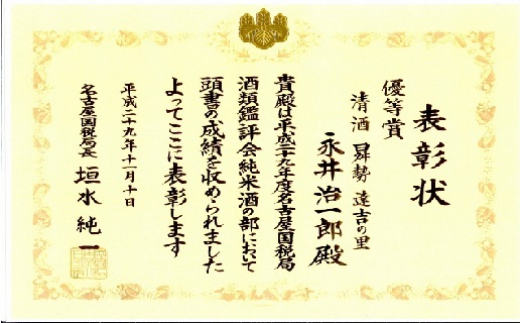 表彰状
優等賞
清酒 昇勢 遠吉の里
永井治一郎殿
貴殿は平成二十九年度名古屋国税局
酒類鑑評会純米酒の部において
頭書の成績を収められました
よってここに表彰します
平成二十九年十一月十日
名古屋国税局長 垣水純一